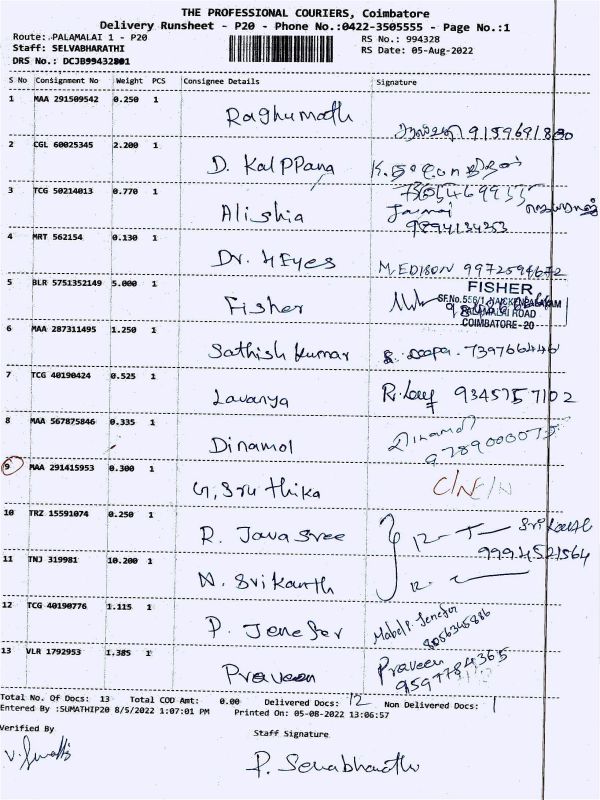 THE PROFESSIONAL COURIERS, Coimbatore
Delivery Runsheet - P20 - Phone No.:0422-3505555 - Page No.:1
Route: PALAMALAI 1 - P20 RS No.: 994328
Staff: SELVABHARATHI RS Date: 05-Aug-2022
DRS No.: DCJB99432801
S No Consignment No Weight PCS Consignee Details Signature
1 MAA 291509542 0.250 1 Raghunath
2 CGL 60025345 2.200 1 D. Kalppana
3 TCG 50214013 0.770 1 Alishia 9894134253
4 MRT 562154 0.130 1 Dr. 4 Eyes M. EDISON 9972594672
5 BLR 5751352149 5.000 1 Fisher FISHER
SF.No. 556/1, NAICKENPALAYAM
PALAMALAI ROAD
COIMBATORE - 20
6 MAA 287311495 1.250 1 Sathish kumar Deepa. 739766446
7 TCG 40190424 0.525 1 Lavanya 9345757102
8 MAA 567875846 0.335 1 Dinamol Dinamol
9 MAA 291415953 0.300 1 G. Sruthika C/N
10 TRZ 15591074 0.250 1 R. Jayasree Srikanth
9994521564
11 TNJ 319981 10.200 1 N. Srikanth
12 TCG 40190776 1.115 1 P. Jenefer Mabel P. Jenefer
8056345886
13 VLR 1792953 1.385 1 Praveen Praveen
9597784365
Total No. Of Docs: 13 Total COD Amt: 0.00 Delivered Docs: 12 Non Delivered Docs: 1
Entered By :SUMATHIP20 8/5/2022 1:07:01 PM Printed On: 05-08-2022 13:06:57
Verified By Staff Signature
P. Selvabharathi